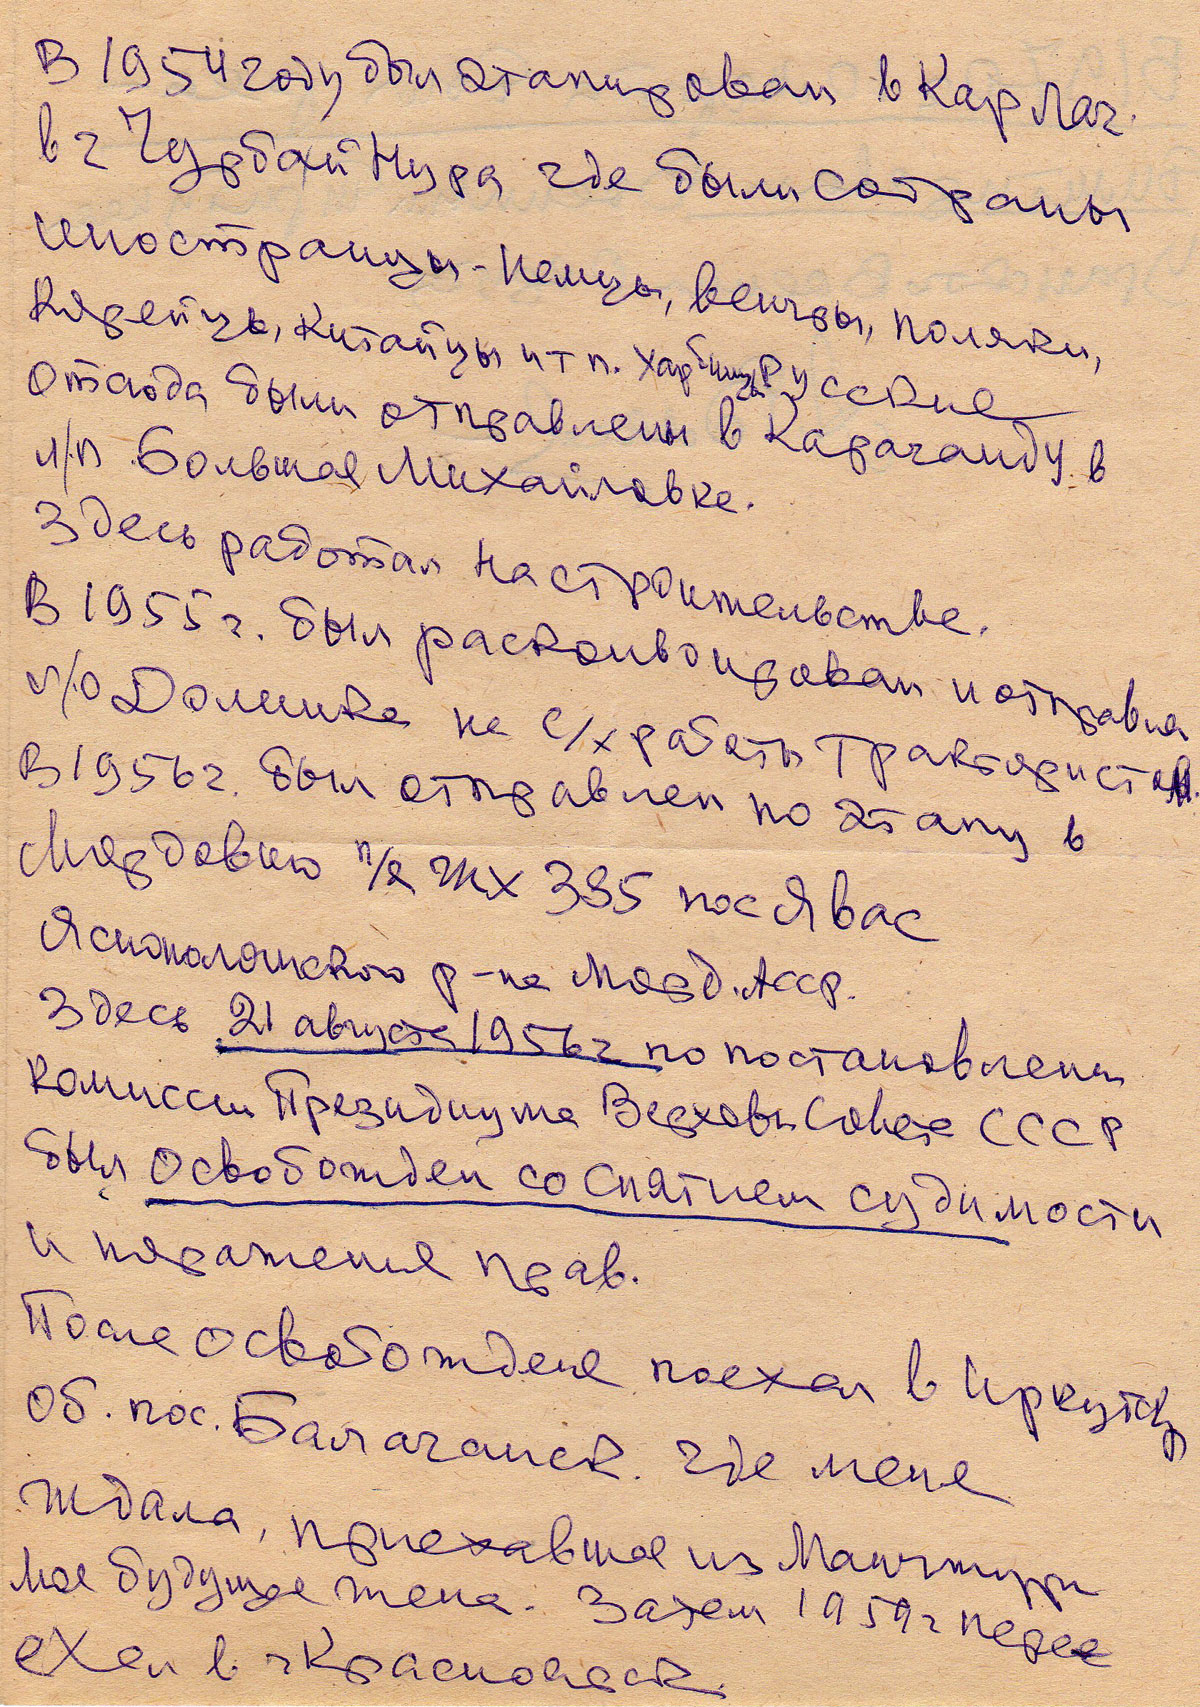 В 1954 году был этапирован в Карлаг
в г Чурбай Нура где были собраны
иностранцы - немцы, венгры, поляки,
корейцы, китайцы и т п. харбинцы Русские
Отсюда были отправлены в Караганду в
л/п Большае Михайловке.
Здесь работал на строительстве.
В 1955 г. был расконвоирован и отправлен
Долинка на с/х работы трактористом.
В 1956 г. был отправлен по этапу в
Мордовию п/я ЖХ 385 пос Явас
р-на Морд. Асср.
Здесь 21 августа 1956 г по постановлении
комиссии Президиума Верховн Совета СССР
был освобожден со снятием судимости
и поражения прав.
После освобождене поехал в Иркутск
об. пос. Балаганск. где меня
ждала, приехавшае из Манчжури
мое будущае жена. Затем 1959 г пере
ехал в г Красноярск.